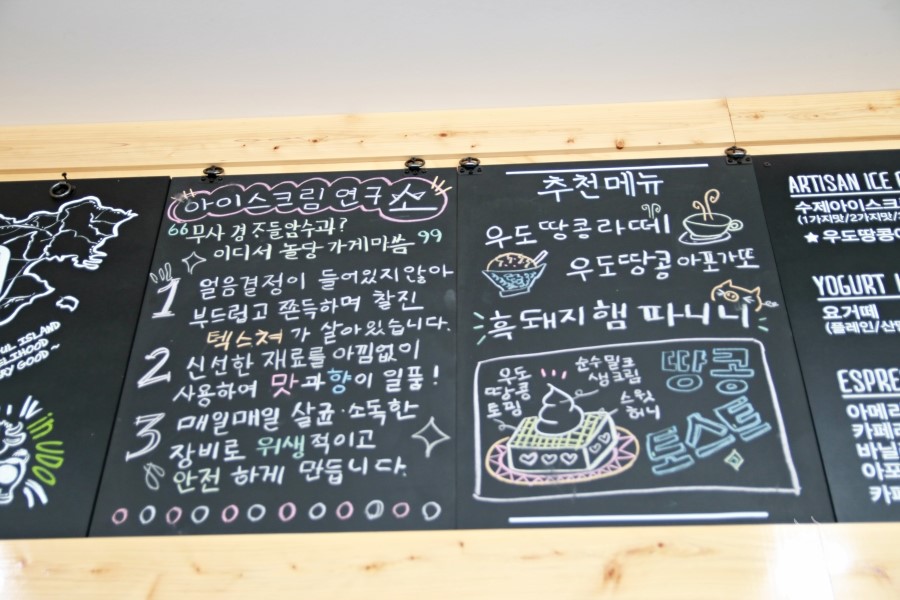 UL ISLAND
LIHOOD
RY GOOD~
in
UDO
아이스크림 연구소
“무사 경 조들암수과?
이디서 놀당 가게마씀”
1 얼음결정이 들어있지않아
부드럽고 쫀득하며 찰진
텍스쳐가 살아있습니다.
2 신선한 재료를 아낌없이
사용하여 맛과 향이 일품!
3 매일매일 살균·소독한
장비로 위생적이고
안전하게 만듭니다.
추천메뉴
우도땅콩라떼
우도땅콩아포가또
흑돼지햄 파니니
우도
땅콩
토핑
순수밀크
생크림
스윗
허니
땅콩
토스트
ARTISAN ICE
수제아이스크
(1가지맛/2가지맛/
★우도땅콩
YOGURT
요거떼
(플레인/산딸
ESPRE
아메리
카페라
바닐
아포
카페